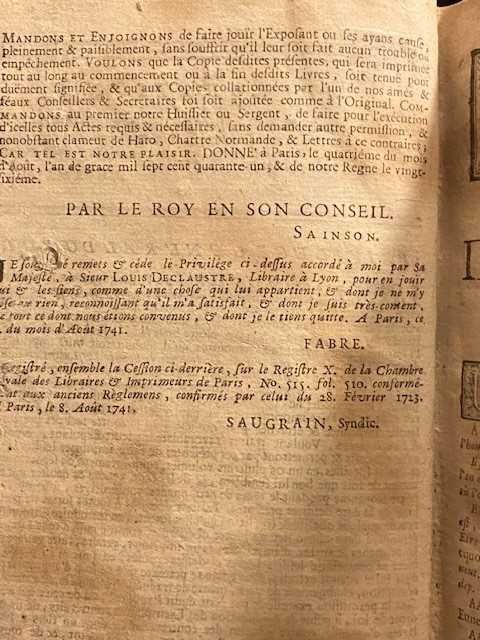 MANDONS ET ENJOIGNONS de faire jouir l'Exposant ou ses ayans cause,
pleinement & paisiblement, sans souffrir qu'il leur soit fait aucun trouble ou
empêchement. VOULONS que la Copie desdites présentes, qui sera imprimée
tout au long au commencement ou à la fin desdits Livres, soit tenuë pour
duëment signifiée, & qu'aux Copies collationnées par l'un de nos amés &
féaux Conseillers & Secretaires foi soit ajoûtée comme à l'Original. COM-
MANDONS au premier notre Huissier ou Sergent, de faire pour l'exécution
d'icelles tous Actes requis & nécessaires, sans demander autre permission, &
nonobstant clameur de Haro, Chartre Normande, & Lettres à ce contraires;
CAR TEL EST NOTRE PLAISIR. DONNÉ à Paris, le quatriéme du mois
d'Août, l'an de grace mil sept cent quarante-un, & de notre Regne le vingt-
sixiéme.
PAR LE ROY EN SON CONSEIL.
SAINSON.
remets & céde le Privilège ci-dessus accordé à moi par Sa
Majesté, à Sieur LOUIS DECLAUSTRE, Libraire à Lyon, pour en jouir
lui & les siens, comme d'une chose qui lui appartient; & dont je ne m'y
rien, reconnoissant qu'il m'a satisfait, & dont je suis très-content,
de tout ce dont nous étions convenus, & dont je le tiens quitte. A Paris, ce
du mois d'Août 1741.
FABRE.
Registré, ensemble la Cession ci-derrière, sur le Registre X. de la Chambre
Royale des Libraires & Imprimeurs de Paris, No. 515. fol. 510. conformé-
ment aux anciens Règlemens, confirmés par celui du 28. Février 1723.
A Paris, le 8. Août 1741.
SAUGRAIN, Syndic.